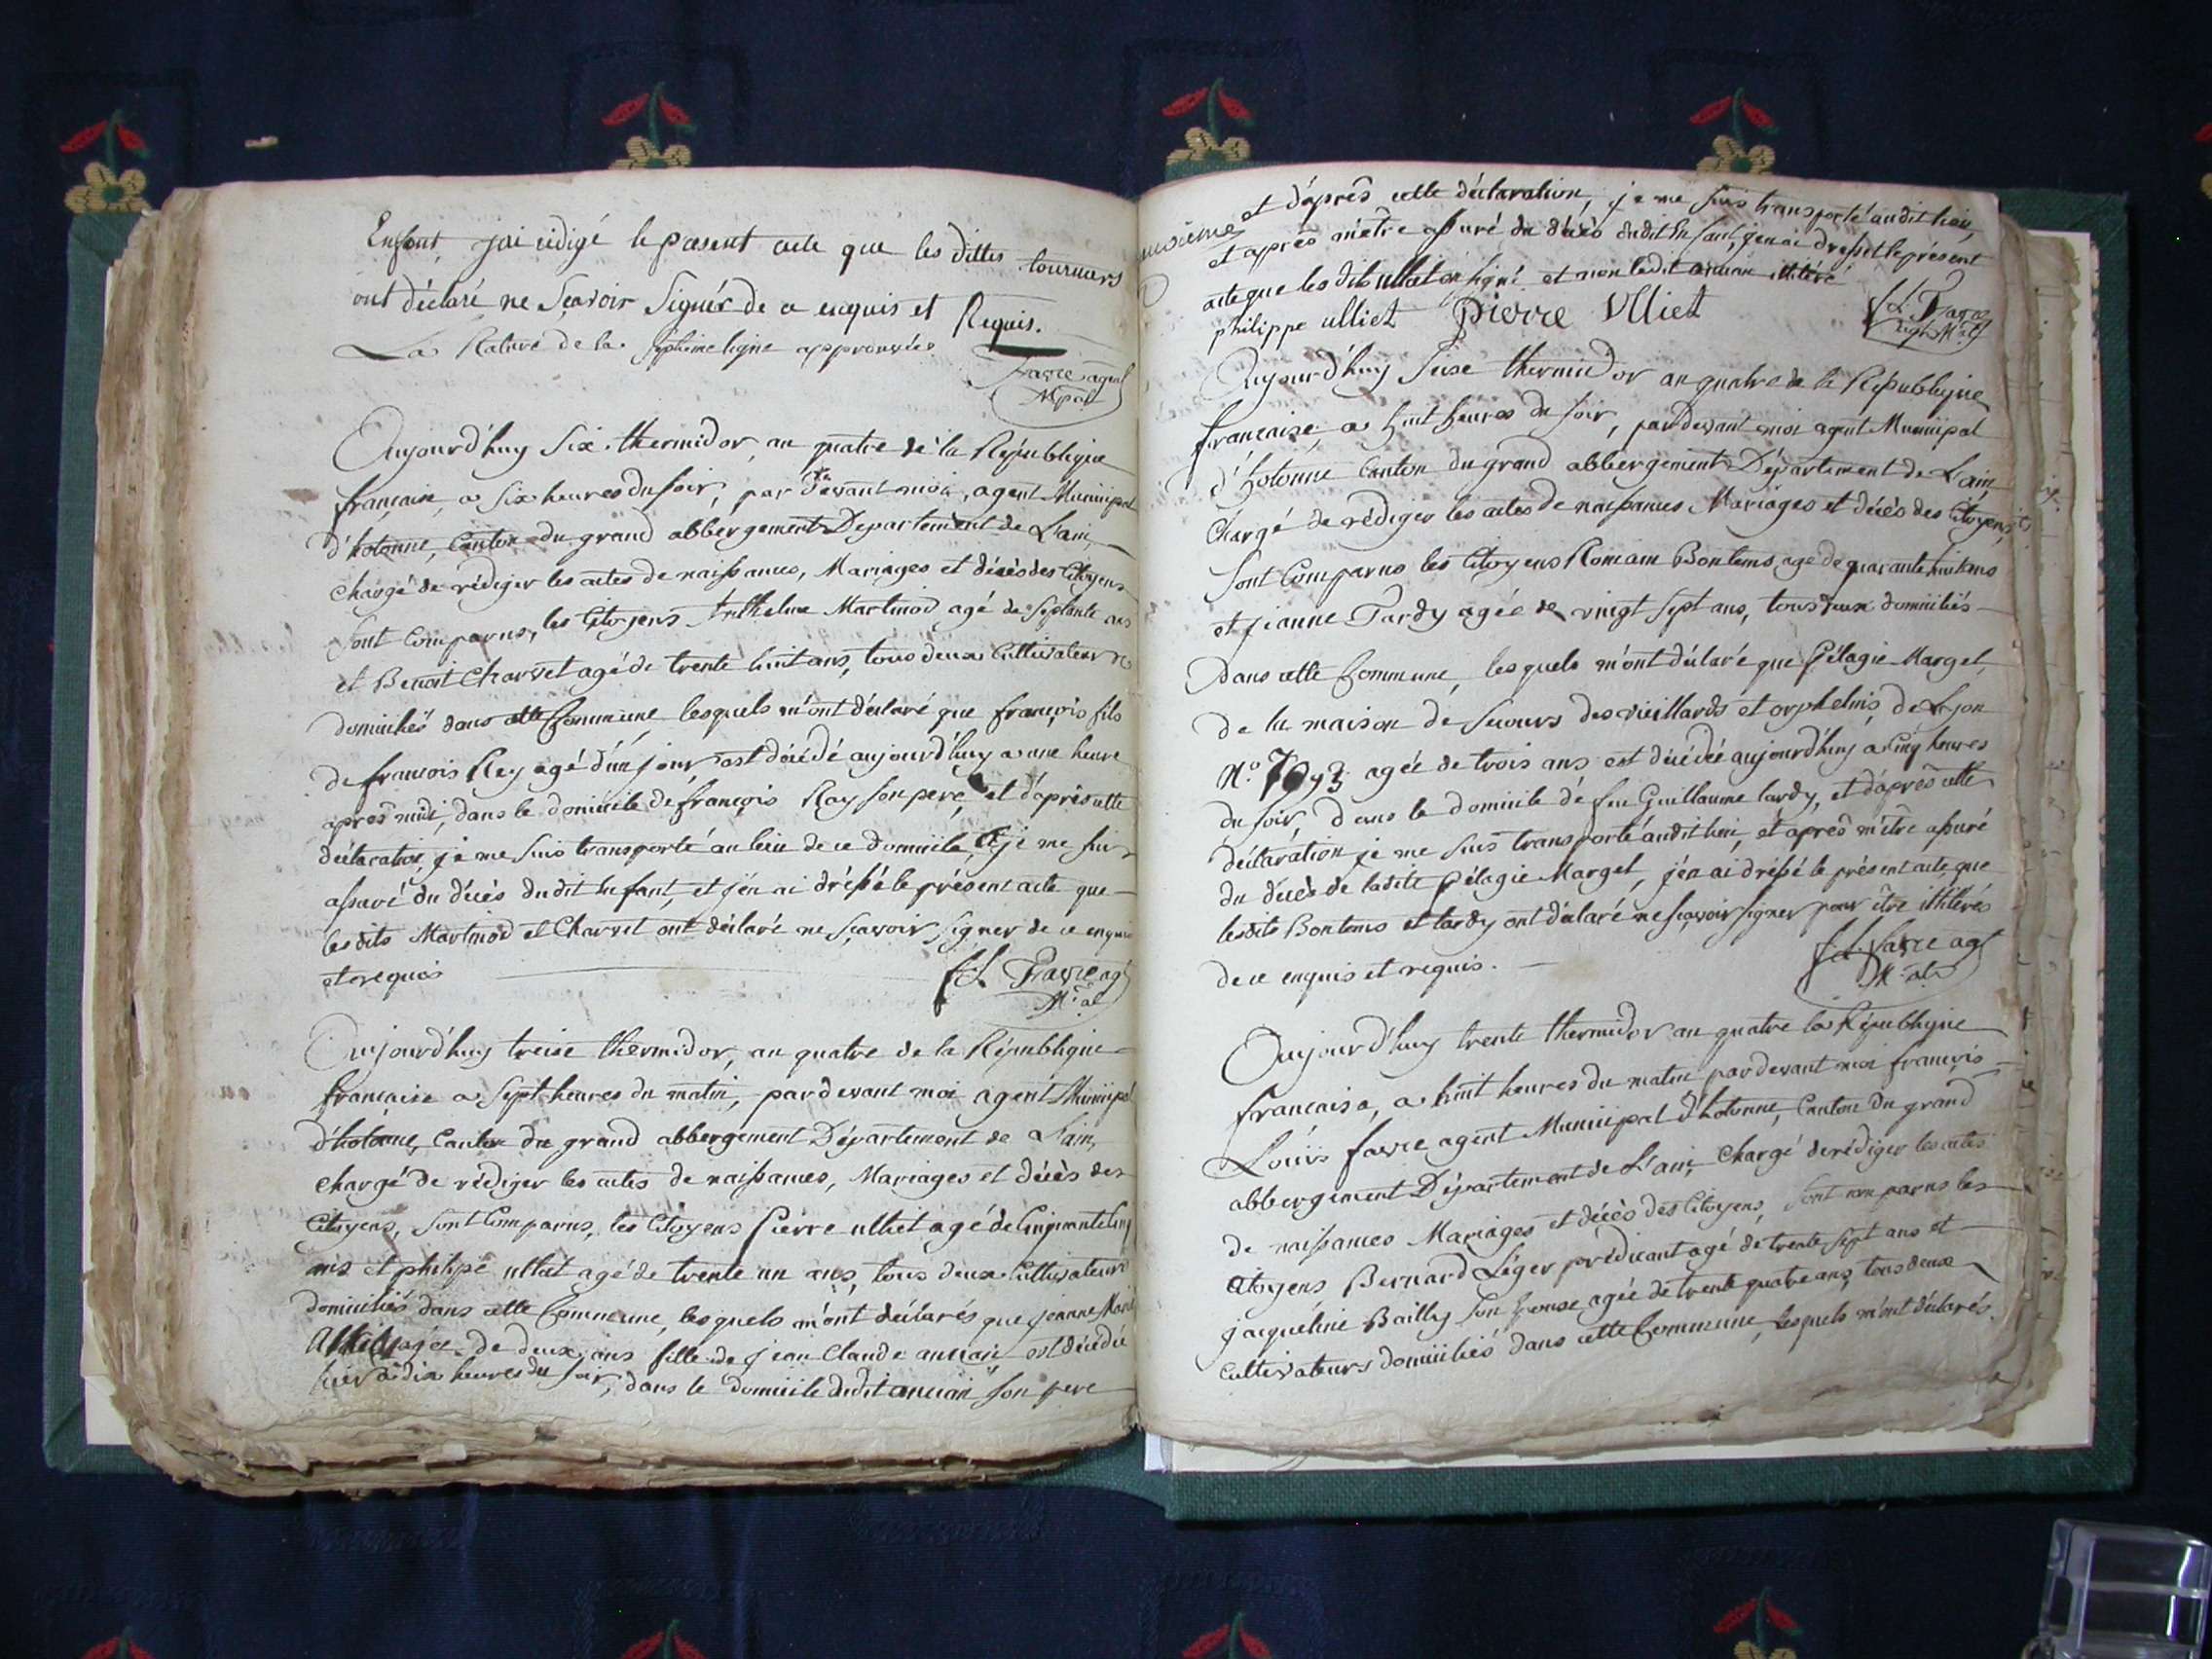 Enfant, jai rédigé le présent acte que les dittes tourniers
ont déclaré ne Sçavoir Signér de ce enquis et Requis.
La Rature de la septieme ligne approuvée
favre agent
Mpal
Aujourd'huy Six thermidor, an quatre de la République
française, a six heures du soir, par devant moi, agent Municipal
d'hotonne, Canton du grand abbergement Departement de L'ain,
chargé de rédiger les actes de naissances, Mariages et décès des Citoyens
sont Comparus, les Citoyens Anthelme Martinod agé de septante ans
et Benoit Charvet agé de trente huit ans, tous deux Cultivateurs
domiciliés dans cette Commune, lesquels m'ont déclaré que françois fils
de françois Rey agé d'un jour est décédé aujourd'huy a une heure
après midi, dans le domicile de françois Ray son pere, et d'après cette
déclaration, je me suis transporté au lieu de ce domicile, et je me suis
assuré du décès dudit Enfant, et j'en ai dréssé le présent acte que
les dits Martinod et Charvet ont déclaré ne sçavoir signer de ce enquis
et requis
f.L. Favre agt
M.al
Aujourd'huy treise thermidor, an quatre de la République
française a Sept heures du matin, pardevant moi agent Municipal
d'hotonne, Canton du grand abbergement Département de L'ain,
chargé de rédiger les actes de naissances, Mariages et décès des
Citoyens, sont Comparus, les Citoyens Pierre ulliet agé de Cinquante Cinq
ans et philipe ulliet agé de trente un ans, tous deux Cultivateurs
domiciliés dans cette Commune, lesquels m'ont déclarés que jeanne Marie
agée de deux ans fille de Jean Claude ancian est décédée
hier a dix heures du soir, dans le domicile dudit ancian son pere
et d'après cette déclaration, je me suis transporté audit lieu,
et après m'être assuré du décès dudit Enfant, j'en ai dressé le présent
acte que les dits ulliet on signé et non ledit ancian illiteré
philippe ulliet Pierre Ulliet
f.L. Favre
agt M.al
Aujourd'huy Seise thermidor an quatre de la République
française, a huit heures du soir, pardevant moi agent Municipal
d'hotonne Canton du grand abbergement Département de L'ain,
Chargé de rédiger les actes de naissances Mariages et décès des Citoyens,
sont Comparus les Citoyens Romain Bontems agé de quarante huit ans
et jeanne Tardy agée de vingt sept ans, tous deux domiciliés
dans cette Commune, les quels m'ont déclaré que Pélagie Marget,
de la maison de secours des vieillards et orphelins, de Lyon
N.° 7093 agée de trois ans est décédée aujourd'huy a Cinq heures
du soir, dans le domicile de feu Guillaume tardy, et d'après cette
déclaration je me suis transporté audit lieu, et après m'être assuré
du décès de ladite Pélagie Marget, j'en ai dréssé le présent acte que
lesdits Bontems et tardy ont déclaré ne sçavoir signer pour être illitérés
de ce enquis et requis.
f.L. favre agt
M.al
Aujourd'huy trente thermidor an quatre la République
française, a huit heures du matin pardevant moi françois
Louis favre agent Municipal d'hotonne, Canton du grand
abbergement Département de L'ain, Chargé de rédiger les actes
de naissances Mariages et décès des Citoyens, sont comparus les
Citoyens Bernard Léger prédicant agé de trente sept ans et
jacqueline Bailly son Epouse agée de trente quatre ans, tous deux
Cultivateurs domiciliés dans cette Commune, Lesquels m'ont déclarés.